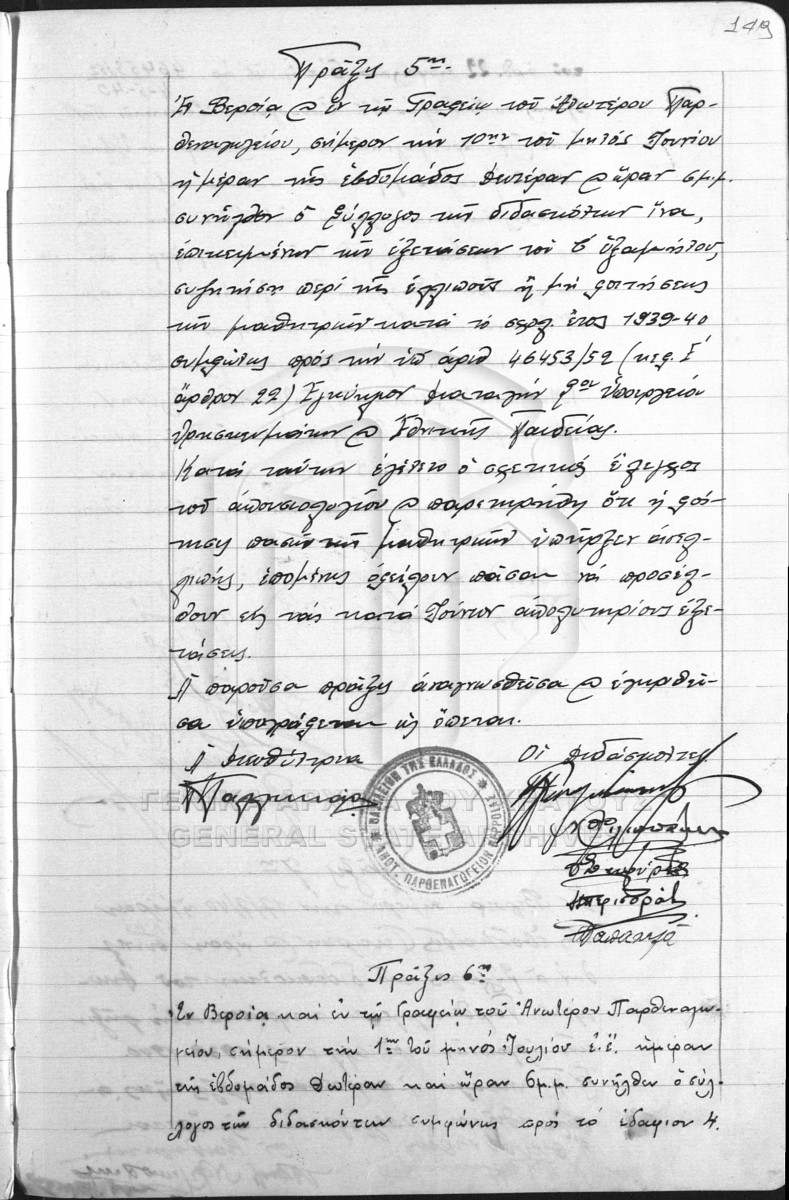 149
Πράξις 5η.
Ἐν Βεροίᾳ & ἐν τῷ Γραφείῳ τοῦ Ἀνωτέρου Παρ-
θεναγωγείου, σήμερον τὴν 10ην τοῦ μηνός Ἰουνίου
ἡμέραν τῆς ἑβδομάδος Δευτέραν & ὥραν 5μ.μ.
συνῆλθεν ὁ Σύλλογος τῶν διδασκόντων ἵνα,
ἐπικειμένων τῶν ἐξετάσεων τοῦ Β' ἑξαμήνου,
συζητήσῃ περί τῆς ἐλλιποῦς ἢ μή φοιτήσεως
τῶν μαθητριῶν κατά τό σχολ. ἔτος 1939-40
συμφώνως πρός τήν ὑπ' ἀριθ 46453/52 (κεφ. Ε'
ἄρθρον 22) Ἐγκύκλιον Διαταγήν τοῦ Ὑπουργείου
Θρησκευμάτων & Ἐθνικῆς Παιδείας.
Κατά ταύτην ἐγένετο ὁ σχετικός ἔλεγχος
τοῦ ἀπουσιολογίου & παρετηρήθη ὅτι ἡ φοί-
τησις πασῶν τῶν μαθητριῶν ὑπῆρξεν ἀνελ-
λιπής, ἑπομένως ὀφείλουν πᾶσαι νά προσέλ-
θουν εἰς τάς κατά Ἰούνιον ἀπολυτηρίους ἐξε-
τάσεις.
Ἡ παροῦσα πρᾶξις ἀναγνωσθεῖσα & ἐγκριθεῖ-
σα ὑπογράφεται ὡς ἕπεται.
Ἡ Διευθύντρια Οἱ Διδάσκοντες
ΒΑΣΙΛΕΙΟΝ ΤΗΣ ΕΛΛΑΔΟΣ
ΠΑΡΘΕΝΑΓΩΓΕΙΟΝ
ΓΕΝΙΚΑ ΑΡΧΕΙΑ ΤΟΥ ΚΡΑΤΟΥΣ
GENERAL STATE ARCHIVES
Πράξις 6η
Ἐν Βεροίᾳ καί ἐν τῷ Γραφείῳ τοῦ Ἀνωτέρου Παρθεναγω-
γείου, σήμερον τήν 1ην τοῦ μηνός Ἰουλίου ἐ.ἔ. ἡμέραν
τῆς ἑβδομάδος Δευτέραν καί ὥραν 6μ.μ. συνῆλθεν ὁ σύλ-
λογος τῶν διδασκόντων συμφώνως πρός τό ἐδάφιον 4.